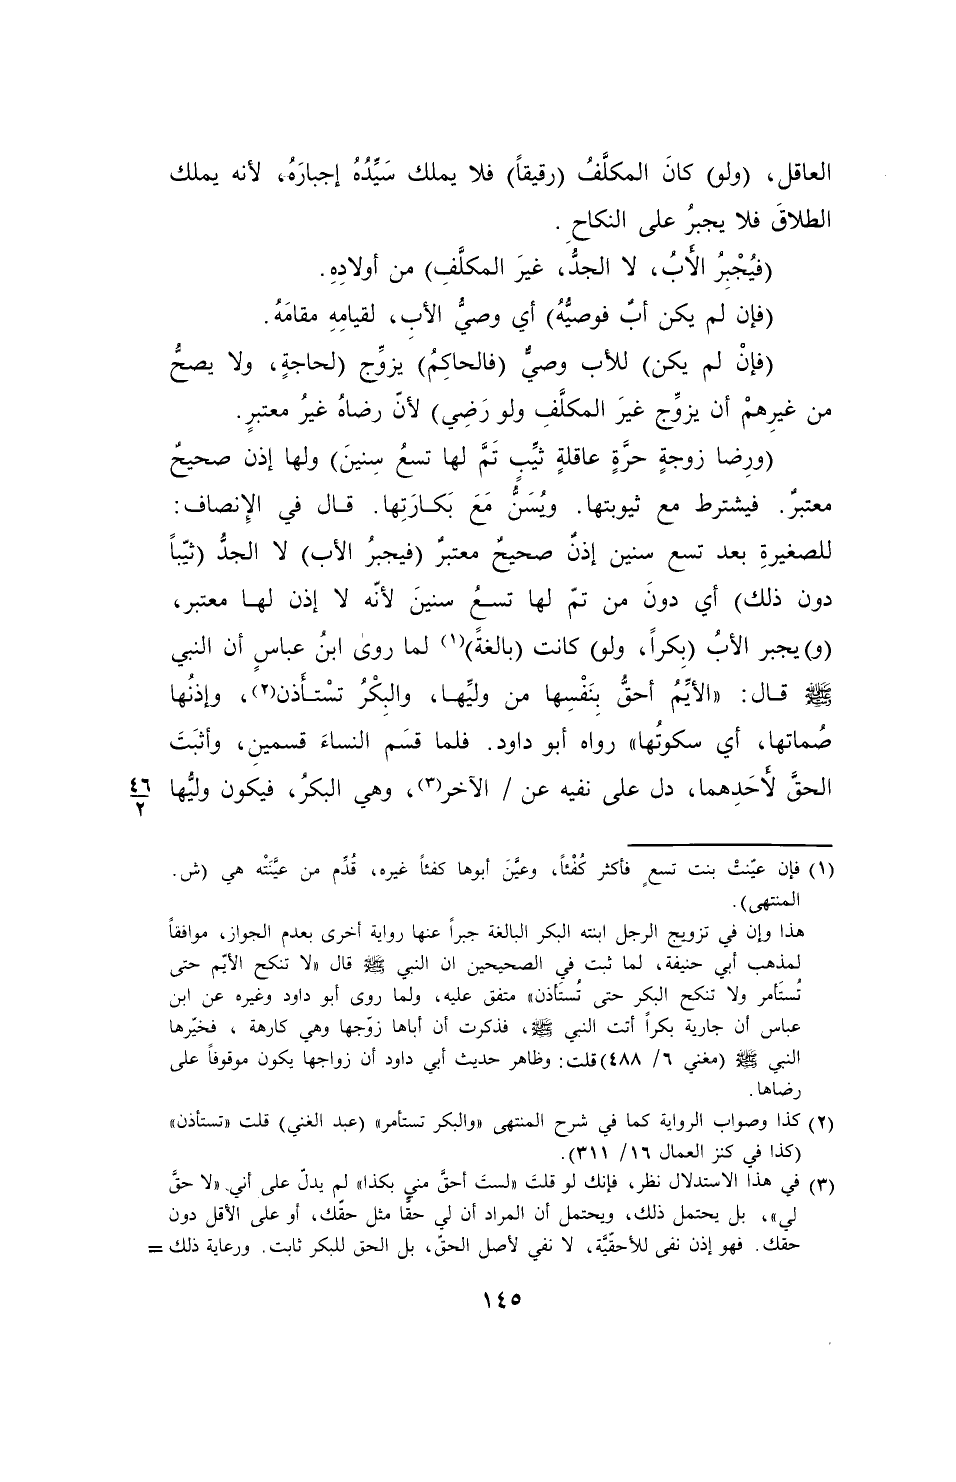 العاقل، (ولو) كانَ المكلَّفُ (رقيقاً) فلا يملك سَيِّدُهُ إجبارَهُ، لأنه يملك
الطلاقَ فلا يجبرُ على النكاحِ.
(فيُجْبِرُ الأَبُ، لا الجدُّ، غيرَ المكلَّفِ) من أولادِهِ.
(فإن لم يكن أبٌ فوصيُّهُ) أي وصيُّ الأبِ، لقيامِهِ مقامَهُ.
(فإنْ لم يكن) للأب وصيٌّ (فالحاكِمُ) يزوِّج (لحاجةٍ، ولا يصحُّ
من غيرِهمْ أن يزوِّج غيرَ المكلَّفِ ولو رَضِي) لأنّ رضاهُ غيرُ معتبرٍ.
(ورِضا زوجةٍ حرَّةٍ عاقلةٍ ثيِّبٍ تَمَّ لها تسعُ سِنينَ) ولها إذن صحيحٌ
معتبرٌ. فيشترط مع ثيوبتها. ويُسَنُّ مَعَ بَكـارَتِها. قـال في الإنصاف:
للصغيرةِ بعد تسع سنين إذنٌ صحيحٌ معتبرٌ (فيجبرُ الأب) لا الجدُّ (ثيّباً
دون ذلك) أي دونَ من تمّ لها تسـعُ سنينَ لأنّه لا إذن لهـا معتبر،
(و) يجبر الأبُ (بِكراً، ولو) كانت (بالغةً)(١) لما روىٰ ابنُ عباسٍ أن النبي
ﷺ قـال: «الأيِّمُ أحقُّ بِنَفْسِها من وليِّهـا، والبكْرُ تسْتـأذن(٢)، وإذنُها
صُماتها، أي سكوتُها» رواه أبو داود. فلما قسَم النساءَ قسمين، وأثبَتَ
الحقَّ لأَحَدِهما، دل على نفيه عن / الآخر(٣)، وهي البكرُ، فيكون وليُّها
٤٦
٢
(١) فإن عيّنتْ بنت تسعٍ فأكثر كُفْئاً، وعيَّنَ أبوها كفئاً غيره، قُدِّم من عيَّنَتْه هي (ش.
المنتهى).
هذا وإن في تزويج الرجل ابنته البكر البالغة جبراً عنها رواية أخرى بعدم الجواز، موافقاً
لمذهب أبي حنيفة، لما ثبت في الصحيحين ان النبي ﷺ قال «لا تنكح الأيّم حتى
تُستَأمر ولا تنكح البكر حتى تُستَأذن» متفق عليه، ولما روى أبو داود وغيره عن ابن
عباس أن جارية بكراً أتت النبي ﷺ، فذكرت أن أباها زوّجها وهي كارهة ، فخيّرها
النبي ﷺ (مغني ٦/ ٤٨٨) قلت: وظاهر حديث أبي داود أن زواجها يكون موقوفاً على
رضاها.
(٢) كذا وصواب الرواية كما في شرح المنتهى «والبكر تستأمر» (عبد الغني) قلت «تستأذن»
(كذا في كنز العمال ١٦/ ٣١١).
(٣) في هذا الاستدلال نظر، فإنك لو قلتَ «لستَ أحقَّ مني بكذا» لم يدلّ على أني «لا حقَّ
لي»، بل يحتمل ذلك، ويحتمل أن المراد أن لي حقًّا مثل حقّك، أو على الأقل دون
حقك. فهو إذن نفى للأحقيَّة، لا نفي لأصل الحقّ، بل الحق للبكر ثابت. ورعاية ذلك =
١٤٥